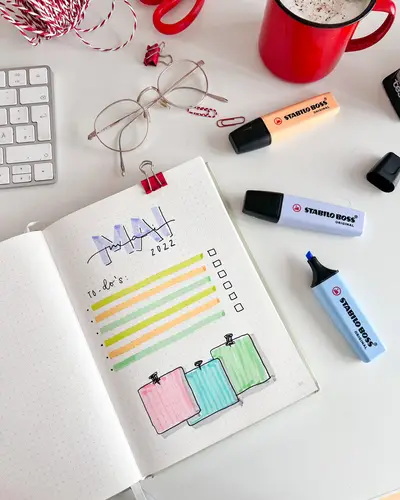 MAI
2022
TO-do's:
STABILO BOSS
ORIGINAL
STABILO BOSS
ORIGINAL
STABILO BOSS
ORIGINAL